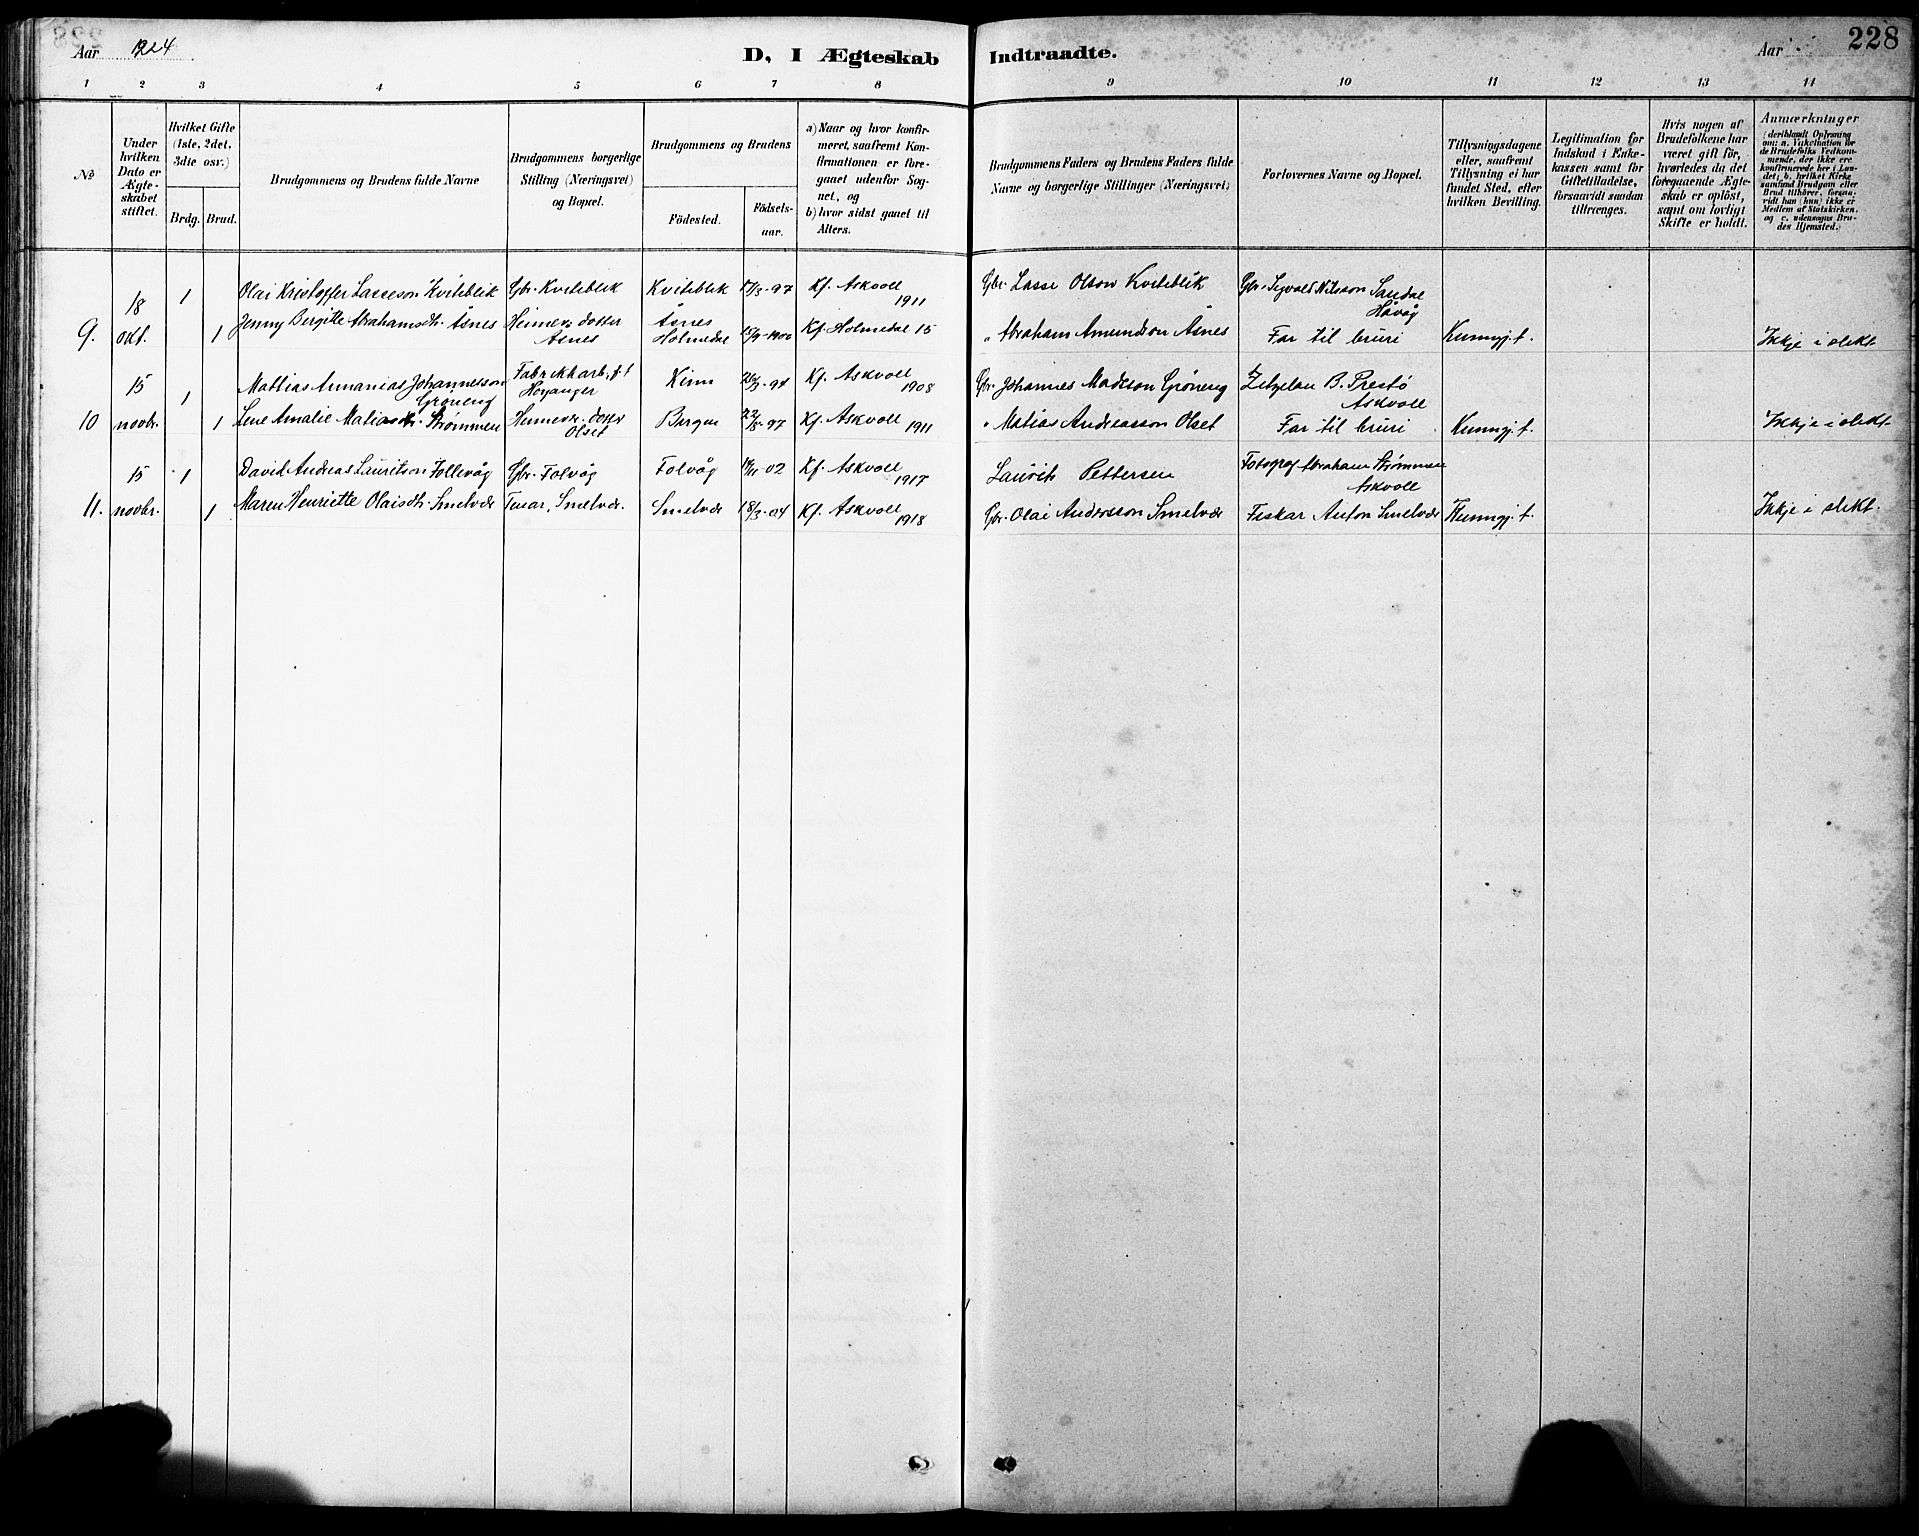 Aar 1924
D, I Ægteskab Indtraadte.
Aar
228
1 2 3 4 5 6 7 8 9 10 11 12 13 14
No
Under
hvilken
Dato er
Ægte-
skabet
stiftet.
Hvilket Gifte
(1ste, 2det,
3die osv.)
Brdg. Brud.
Brudgommens og Brudens fulde Navne
Brudgommens borgerlige
Stilling (Næringsvei)
og Bopæl.
Brudgommens og Brudens
Födested.
Födsels-
aar.
a) Naar og hvor konfir-
meret, saafremt Kon-
firmationen er fore-
gaaet udenfor Sog-
net, og
b) hvor sidst gaaet til
Alters.
Brudgommens Faders og Brudens Faders fulde
Navne og borgerlige Stillinger (Næringsvei)
Forlovernes Navne og Bopæl.
Tillysningsdagene
eller, saafremt
Tillysning ei har
fundet Sted, efter
hvilken Bevilling.
Legitimation for
Indskud i Enke-
kassen samt for
Giftetilladelse,
forsaavidt saadan
tiltrænges.
Hvis nogen af
Brudefolkene har
været gift för,
hvorledes da det
foregaaende Ægte-
skab er oplöst,
samt om lovligt
Skifte er holdt.
Anmærkninger
(deriblandt Oplysning
om: a. Vakcination for
de Brudefolks Vedkom-
mende, der ikke ere
konfirmerede her i Lan-
det; b. hvilket Kirke-
samfund Brudgom eller
Brud tilhörer, forsaa-
vidt han (hun) ikke er
Medlem af Statskirken.
og c. udensogns Bru-
des Hjemsted.)
18 1 Olai Kristoffer Lasseson Kviteblik Gbr. Kviteblik Kviteblik 17/3-97 Kf. Askvoll 1911 Gbr. Lasse Olson Kviteblik Gbr. Sigvald Nilsson Sandal Håvåg
9. okt. 1 Jenny Bergitte Abrahamsdh. Åsnes Heimev. dotter Åsnes Åsnes Holmedal 15/9-1900 Kf. Holmedal 15 " Abraham Amundson Åsnes Far til bruri Kunngj. t. Ikkje i slekt
15 1 Mattias Annanias Johannesson Grøneng Fabrikkarb. Høyanger Kinn 26/3-94 Kf. Askvoll 1908 Gbr. Johannes Madsson Grøneng B. Prestø Askvoll
10 novbr. 1 Lene Amalie Matiasdt. Strømmen Heimev. dotter Olset Bergen 22/5-97 Kf. Askvoll 1911 " Matias Andreasson Olset Far til bruri Kunngj. t. Ikkje i slekt
15 1 David Andreas Lauritson Follevåg Gbr. Folvåg Folvåg 02 Kf. Askvoll 1917 Laurits Pettersen Fotograf Abraham Strømmen Askvoll
11. novbr. 1 Maren Henriette Olaisdh. Smelvær Tenar, Smelvær. Smelvær 18/3-04 Kf. Askvoll 1918 Gbr. Olai Andersson Smelvær Fiskar Anton Smelvær Kunngj. t. Ikkje i slekt.